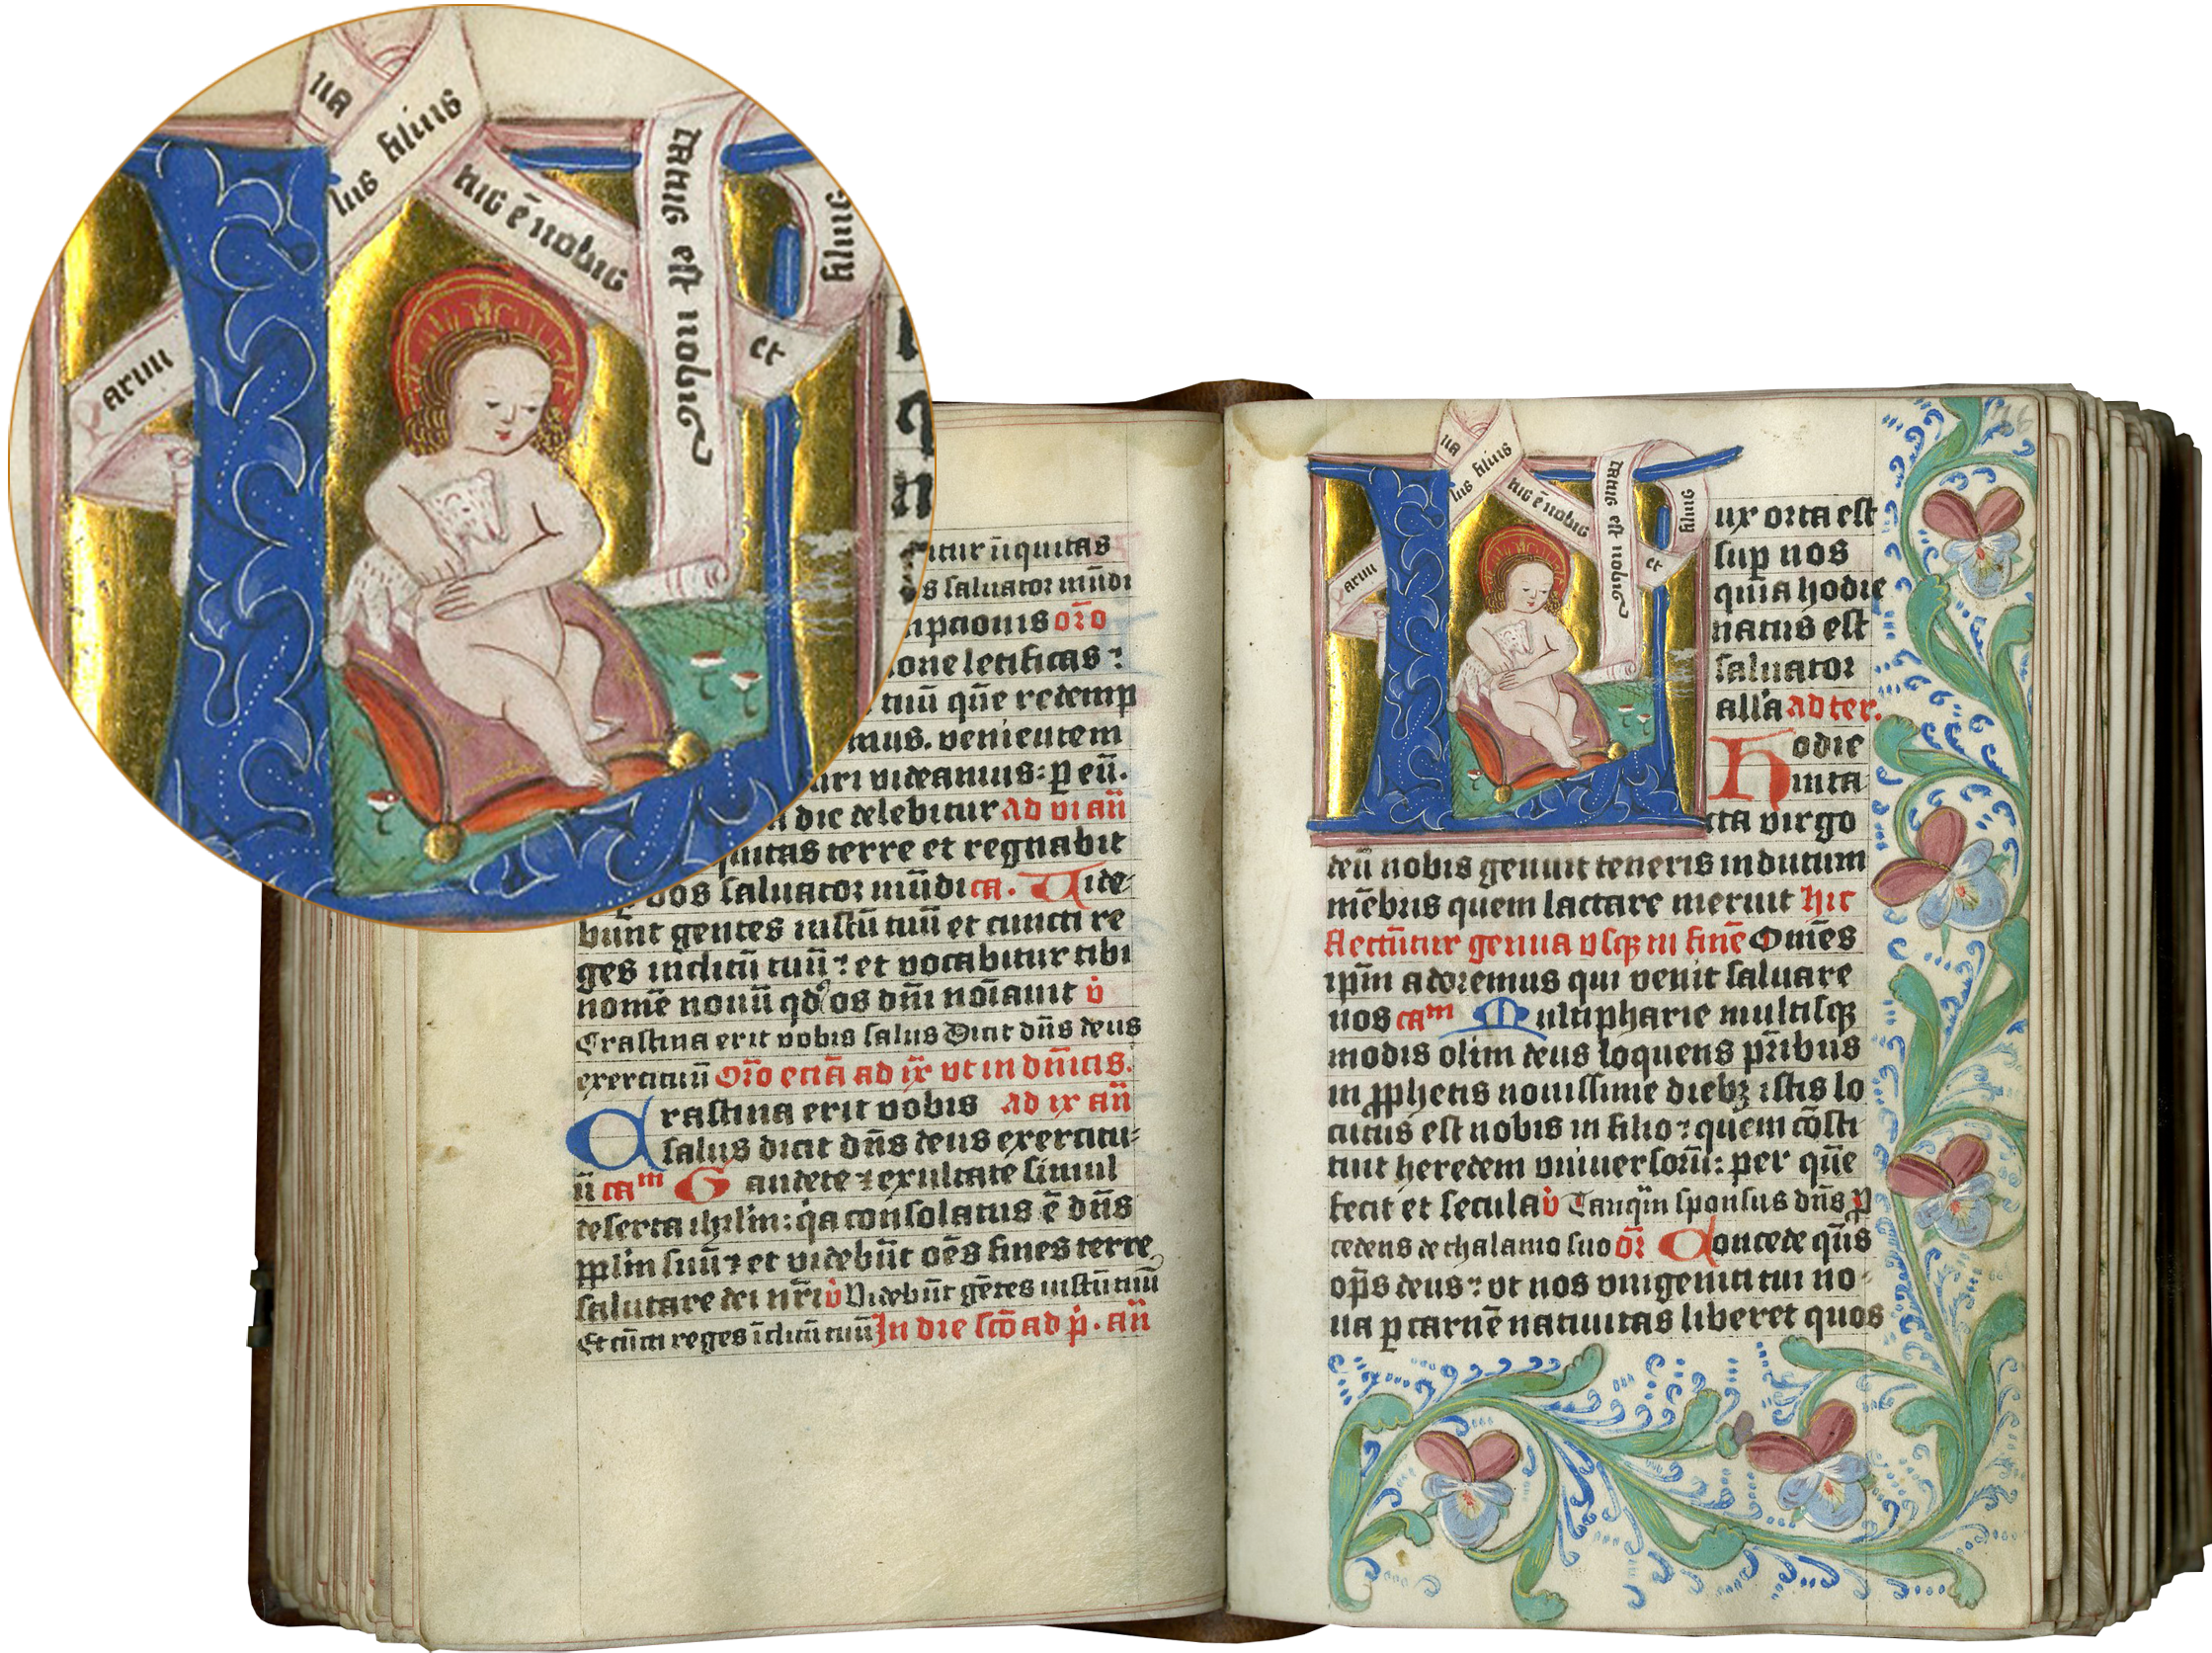 ua
lus filius
tus ē nobis
tatus est nobis
et
filius
aruu
itur iiquitas
s saluator mūdi
mpcionis oro
one letificas :
tuū quē redemp
mus. venientem
uri videamus : p eū.
die delebitur ad vi añ
quitas terre et regnabit
nos saluator mūdi ca. Vide
bunt gentes iustū tuū et cuncti re
ges inclitū tuū : et vocabitur tibi
nomē nouū qd os dñi noīauit v̇
Crastina erit vobis salus Dicit dñs deus
exercituū oro eciā ad ix vt in dñicis.
Crastina erit vobis ad ix añ
salus dicit dñs deus exercitu
ū caᵐ Gaudete et exultate simul
deserta ihrlm : qa consolatus ē dñs
pplm suū : et videbūt oēs fines terre
salutare dei nrī v̇ Videbūt gētes iustū tuū
Et cūcti reges īclitū tuū In die scō ad p̄. añ
ux orta est
sup nos
quia hodie
natus est
saluator
alla ad ter.
Hodie
inta
cta virgo
deū nobis genuit teneris indutum
mēbris quem lactare meruit Hic
flectūtur genua vsqz in finē Omēs
ipm adoremus qui venit saluare
nos caᵐ Multipharie multisqz
modis olim deus loquens pribus
in pphetis nouissime diebz istis lo
cutus est nobis in filio : quem cōsti
tuit heredem vniuersorū : per quē
fecit et secula v̇ Tanqm sponsus dñs p
cedens de thalamo suo or Concede qus
ops deus : vt nos vnigeniti tui no
ua p carnē natiuitas liberet quos